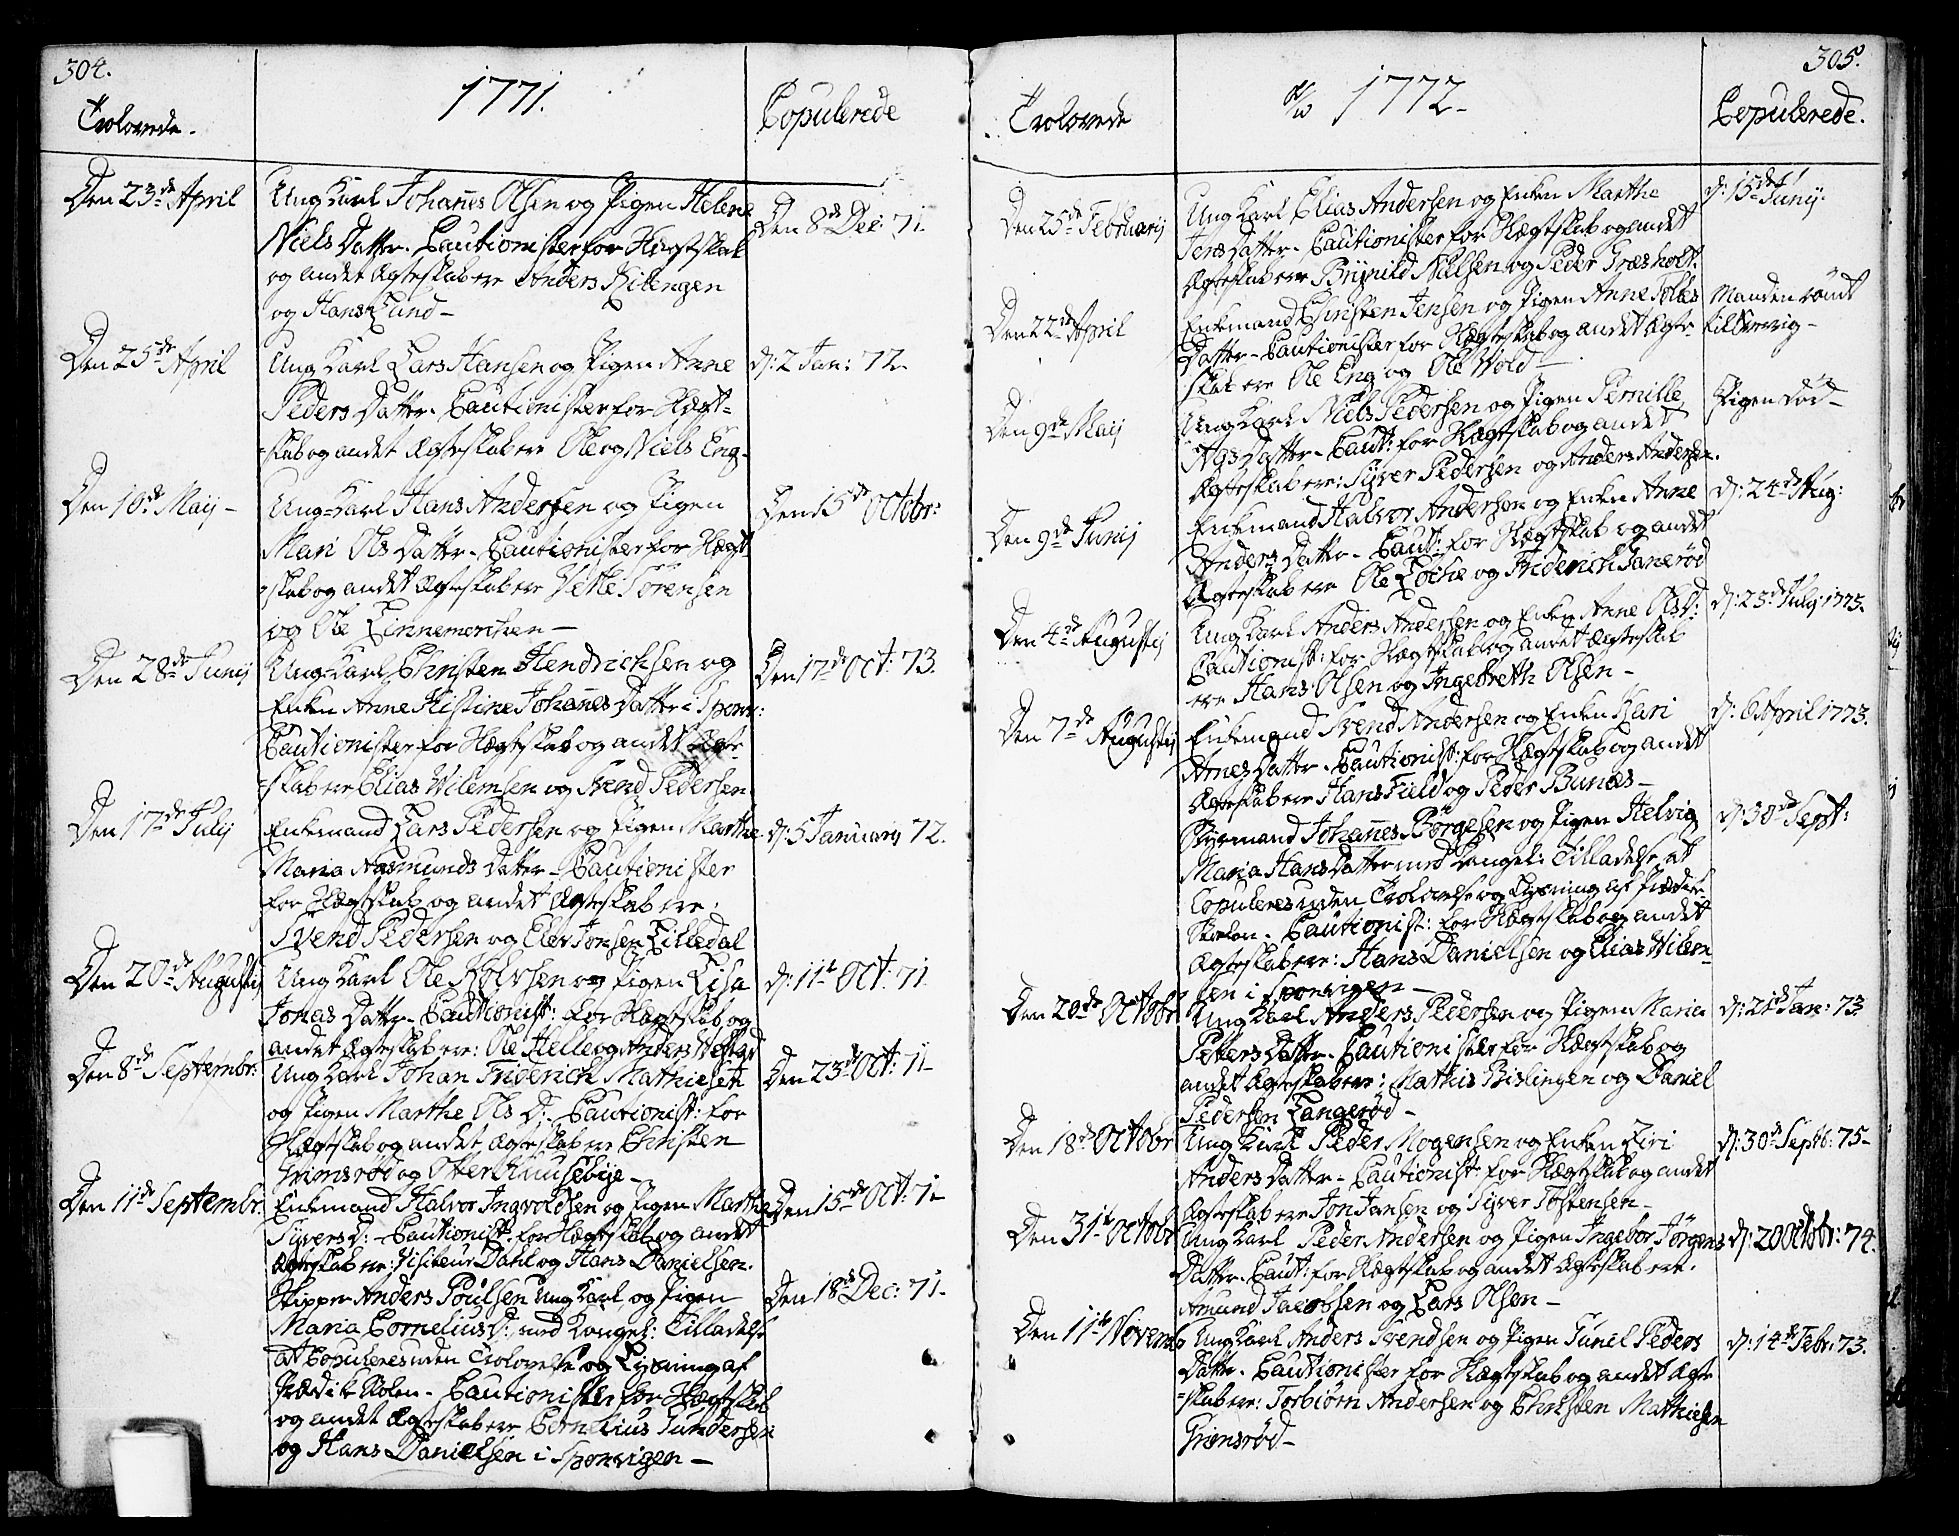 304.
Trolovede.
1771.
Copulerede
Den 23de April
Ung Karl Johanes Olsen og Pigen Helene
Niels Datter. Cautionister for Hægtskab
og andet Ægteskab ere Anders
og Hans Lund -
Den 8de Dec: 71.
Den 25de April
Ung Karl Lars Hansen og Pigen Anne
Peders Datter. Cautionister for Hægt-
-skab og andet Ægteskab ere Ole og Niels Eng-
d: 2 Jan: 72.
Den 10de Maij -
Ung Karl Hans Andersen og Pigen
Mari Ols Datter. Cautionister for Hægt
-skab og andet Ægteskab ere Vette Sörensen
og Ole
Den 15de Octobr:
Den 28de Junij
Ung Karl Christen Hendrichsen og
Enken Anne Kistine Johanes Datter i Sponv:
Cautionister for Hægtskab og andet Ægte
-skab ere Elias Wilemsen og Svend Pedersen
Den 17de Oct: 73.
Den 17de Julij
Enkemand Lars Pedersen og Pigen Marthe
Maria Aasmunds Datter - Cautionister
for Hægtskab og andet Ægteskab ere:
Svend Pedersen og Elev Jonsen Lilledal
d: 5 Januarij 72.
Den 20de Augustij
Ung Karl Ole Holvsen og Pigen Lisa
Jonas Datter. Cautionist: for Hægtskab og
andet Ægteskab ere: Ole Helle og Anders
d: 11te Oct: 71.
Den 8de Septembr:
Ung Karl Johan Friderich Mathiesen
og Pigen Marthe Ols D: Cautionist: for
Hægtskab og andet Ægteskab ere Christen
Grimsröd og
Den 23de Oct: 71-
Den 11te Septembr.
Enkemand Halvor Ingvoldsen og Pigen Marthe
Sÿvers D: - Cautionist: for Hægtskab og andet
Ægteskab ere: Visiteur Dahl og Hans Danielsen.
Den 15de Oct: 71-
Skipper Anders Poulsen Ung Karl og Pigen
Maria Cornelius D: med Kongel: Tilladelse
at Copuleres uden Trolovelse og Lysning af
Prædik Stolen - Cautionister for Hægtskab
og andet Ægteskab ere Cornelius Gundersen
og Hans Danielsen i Sponvigen -
Den 18de Dec: 71-
305.
Trolovede
Ao 1772-
Copulerede.
Den 25de Februarij
Ung Karl Elias Andersen og Enken Marthe
Jens Datter. Cautionister for Hægtskab og andet
Ægteskab ere Brÿnild Nielsen og Peder Græsholt.
d: 15de Junij.
Den 22de April
Enkemand Christen Jensen og Pigen Anne Tolles
Datter - Cautionister for Hægteskab og andet Ægte
skab ere Ole Eng og Ole Wold -
Manden römt
til Sverrig -
Den 9de Maij
Ung Karl Niels Pedersen og Pigen Pernille
Ags Datter - Caut: for Hægtskab og andet
Ægteskab ere: Sÿver Pedersen og Anders Andersen.
Pigen död -
Den 9de Junij
Enkemand Halvor Andersen og Enken Anne
Anders Datter - Caut: for Hægtskab og andet
Ægteskab ere Ole Löche og Friderich Taneröd
d: 24de Aug:
Den 4de Augustij
Ung Karl Anders Andersen og Enken Anne Ols D:
Cautionist: for Hægtskab og andet Ægteskab
ere Hans Olsen og Ingebreth Olsen -
d: 25de Julij 1773.
Den 7de Augustij
Enkemand Svend Andersen og Enken Kari
Arnes Datter. Cautionist: for Hægtskab og andet
Ægteskab ere Hans Field og Peder Bunæs -
d: 6 April 1773.
Styrmand Johanes Börgesen og Pigen Helvig
Maria Hans Datter med Kongel: Tilladelse at
Copuleres uden Trolovelse og Lysning af Prædike
Stolen. Cautionist: for Hægtskab og andet
Ægteskab ere: Hans Danielsen og Elias Wilem-
sen i Sponvigen -
d: 30de Sept:
Den 20de Octobr
Ung Karl Anders Pedersen og Pigen Maria
Petters Datter. Cautionister for Hægtskab og
andet Ægteskab ere: Mathis Bislingen og Daniel
Pedersen Langeröd -
d: 21de Jan: 73
Den 18de Octobr
Ung Karl Peder Mogensen og Enken Siri
Anders Datter - Cautionist: for Hægtskab og andet
Ægteskab ere Jon Jansen og Sÿver Tostensen -
d: 30de Septb: 75-
Den 31te Octobr
Ung Karl Peder Andersen og Pigen Ingebor Jörgens
Datter. Caut: for Hægtskab og andet Ægteskab ere.
Amund Jacobsen og Lars Olsen -
d: 20 Octobr: 74.
Den 11te Novemb
Ung Karl Anders Svendsen og Pigen Gunil Peders
Datter. Cautionister for Hægtskab og andet Ægte
-skab ere: Torbiörn Andersen og Christen Mathiesen
Grimsröd -
d: 14de Febr: 73.